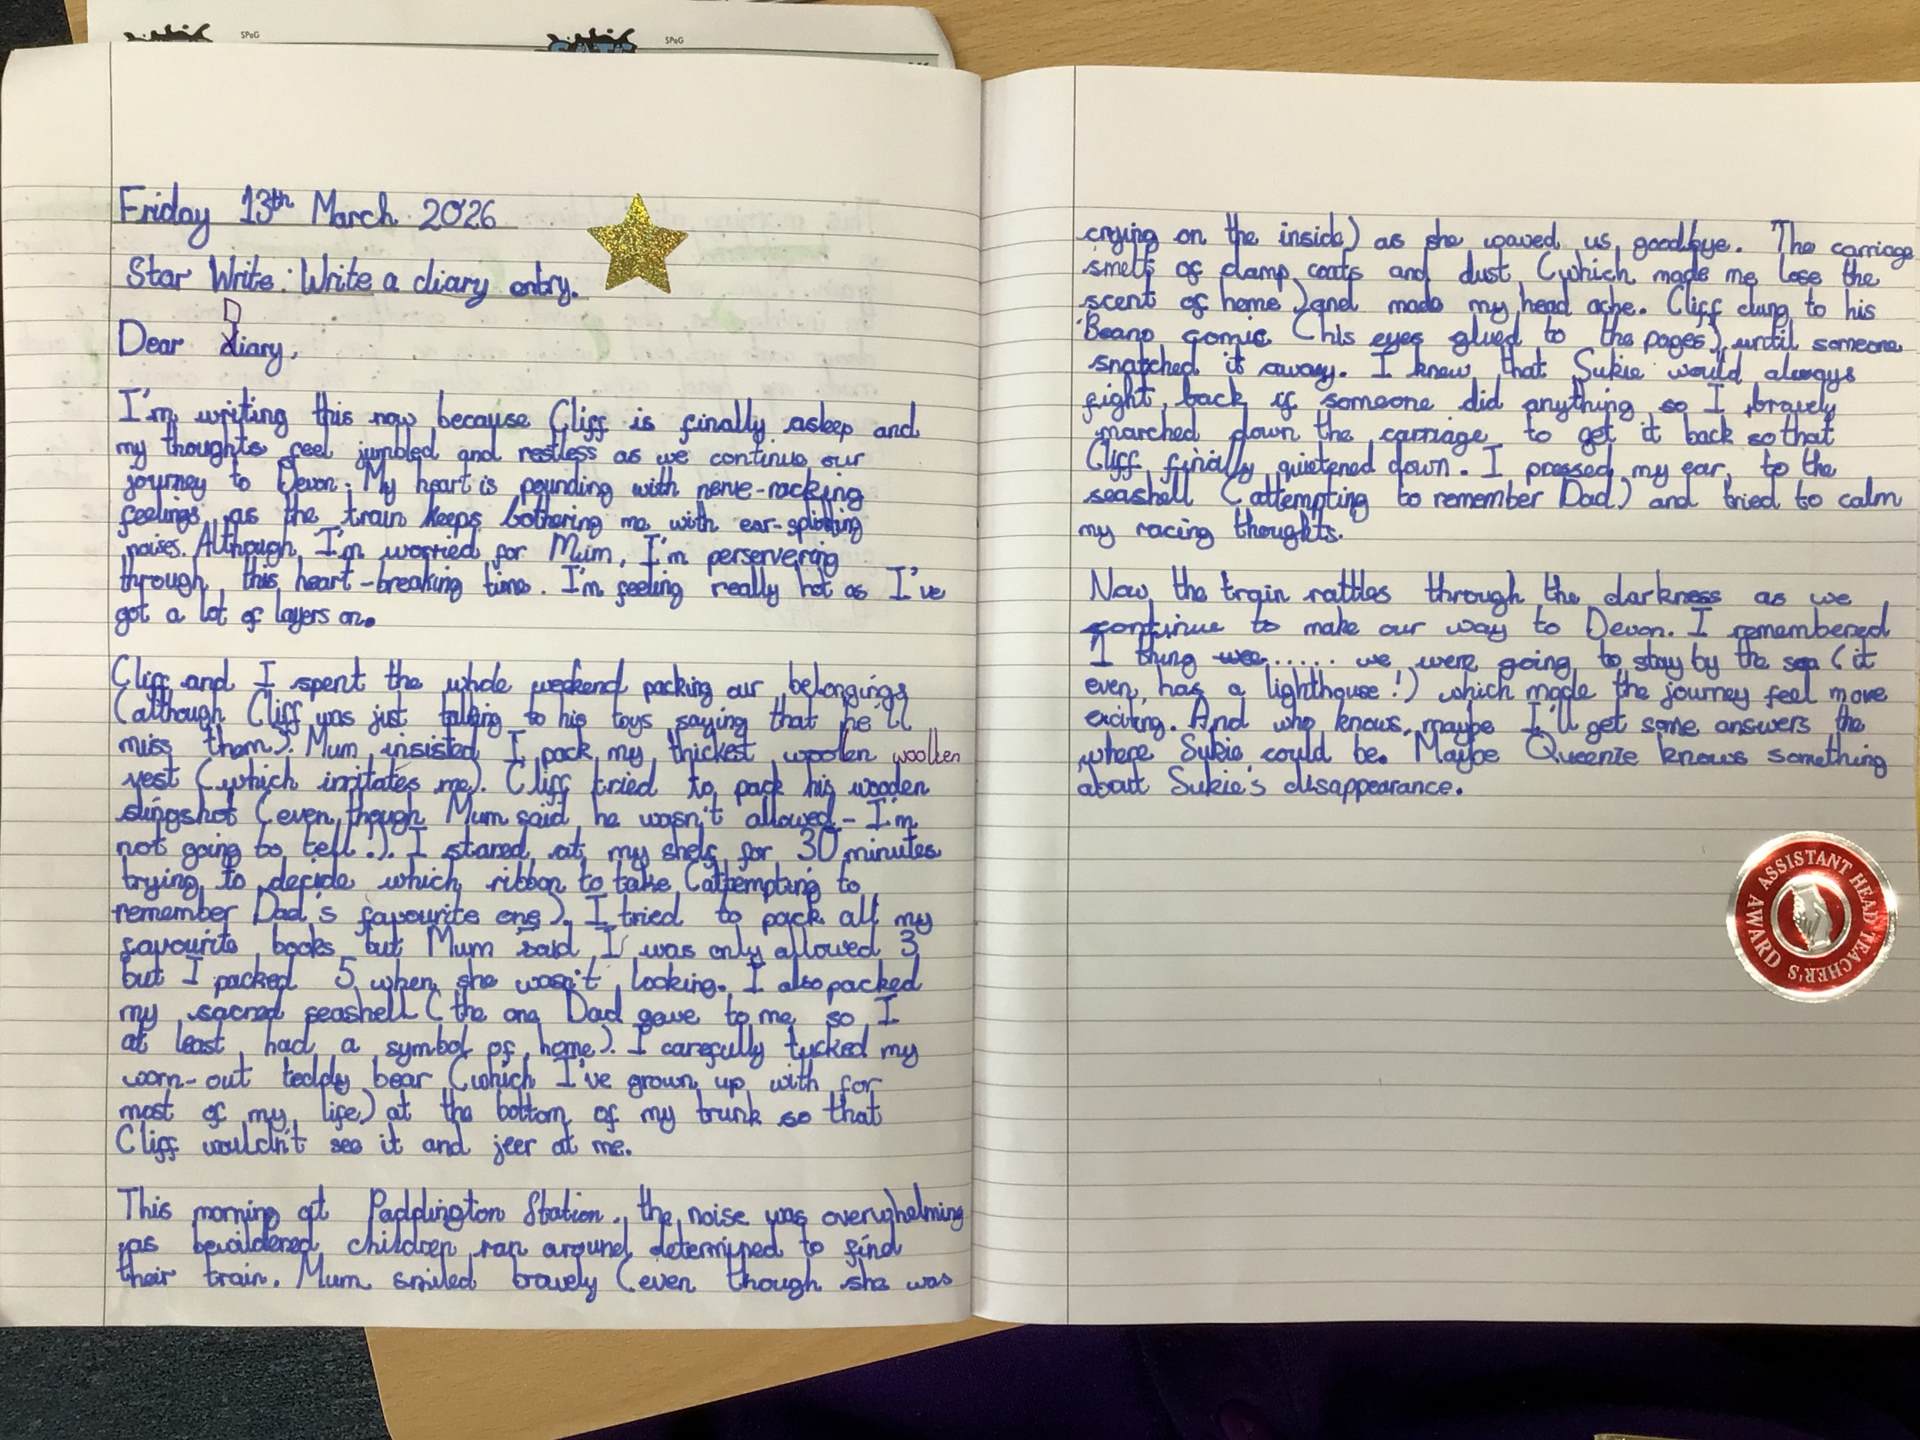 SPaG
SPaG
SATs
Friday 13th March 2026
Star Write: Write a diary entry.
D
Dear diary,
I'm writing this now because Cliff is finally asleep and
my thoughts feel jumbled and restless as we continue our
journey to Devon. My heart is pounding with nerve-racking
feelings as the train keeps bothering me with ear-splitting
noises. Although, I'm worried for Mum, I'm perservering
through this heart-breaking time. I'm feeling really hot as I've
got a lot of layers on.
Cliff and I spent the whole weekend packing our belongings
(although Cliff was just talking to his toys saying that he'll
miss them). Mum insisted I pack my thickest woolen woollen
vest (which irritates me). Cliff tried to pack his wooden
slingshot (even though Mum said he wasn't allowed - I'm
not going to tell!). I stared at my shelf for 30 minutes
trying to decide which ribbon to take (attempting to
remember Dad's favourite one). I tried to pack all my
favourite books but Mum said I was only allowed 3
but I packed 5 when she wasn't looking. I also packed
my sacred seashell (the one Dad gave to me so I
at least had a symbol of home). I carefully tucked my
worn-out teddy bear (which I've grown up with for
most of my life) at the bottom of my trunk so that
Cliff wouldn't see it and jeer at me.
This morning at Paddington Station, the noise was overwhelming
as bewildered children ran around determined to find
their train. Mum smiled bravely (even though she was
crying on the inside) as she waved us goodbye. The carriage
smelt of damp coats and dust (which made me lose the
scent of home) and made my head ache. Cliff clung to his
Beano comic (his eyes glued to the pages) until someone
snatched it away. I knew that Sukie would always
fight back if someone did anything so I bravely
marched down the carriage to get it back so that
Cliff finally quietened down. I pressed my ear to the
seashell (attempting to remember Dad) and tried to calm
my racing thoughts.
Now the train rattles through the darkness as we
continue to make our way to Devon. I remembered
I thing wee..... we were going to stay by the sea (it
even has a lighthouse!) which made the journey feel more
exciting. And who knows, maybe I'll get some answers the
where Sukie could be. Maybe Queenie knows something
about Sukie's disappearance.
ASSISTANT HEAD TEACHER'S AWARD